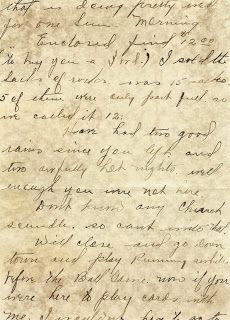 that is doing pretty well
for one Sun. Morning
Enclosed find $12.00
to buy you a Ford? I sold the
sacks of rocks was 15 sacks
5 of them were only part full so
we called it 12.
Have had two good
rains since you left and
two awfully hot nights, well
enough you were not here.
Dont know any Church
scandle, so cant write that
Will close and go down
town and play Running
before the Ball Game. now if you
were here to play cards with
me I